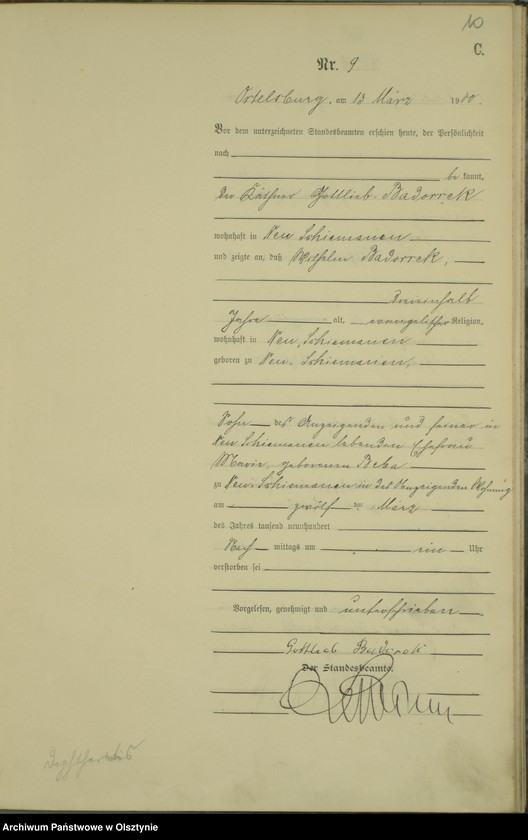 10
C.
Nr. 9
Ortelsburg, am 13 März 1900.
Vor dem unterzeichneten Standesbeamten erschien heute, der Persönlichkeit
nach
be kannt,
der Käthner Gottlieb Badorrek
wohnhaft in Neu Schiemanen
und zeigte an, daß Wilhelm Badorrek,
Jahre alt, evangelischer Religion,
wohnhaft in Neu Schiemanen
geboren zu Neu Schiemanen,
Sohn des Anzeigenden und seiner in
Neu Schiemanen lebenden Ehefrau
Marie, geborenen Beba
zu Neu Schiemanen in des Anzeigenden Wohnung
am zwölf ten März
des Jahres tausend neunhundert
Nach mittags um ein Uhr
verstorben sei
Vorgelesen, genehmigt und unterschrieben
Gottlieb Badorrek
Der Standesbeamte.
Archiwum Państwowe w Olsztynie